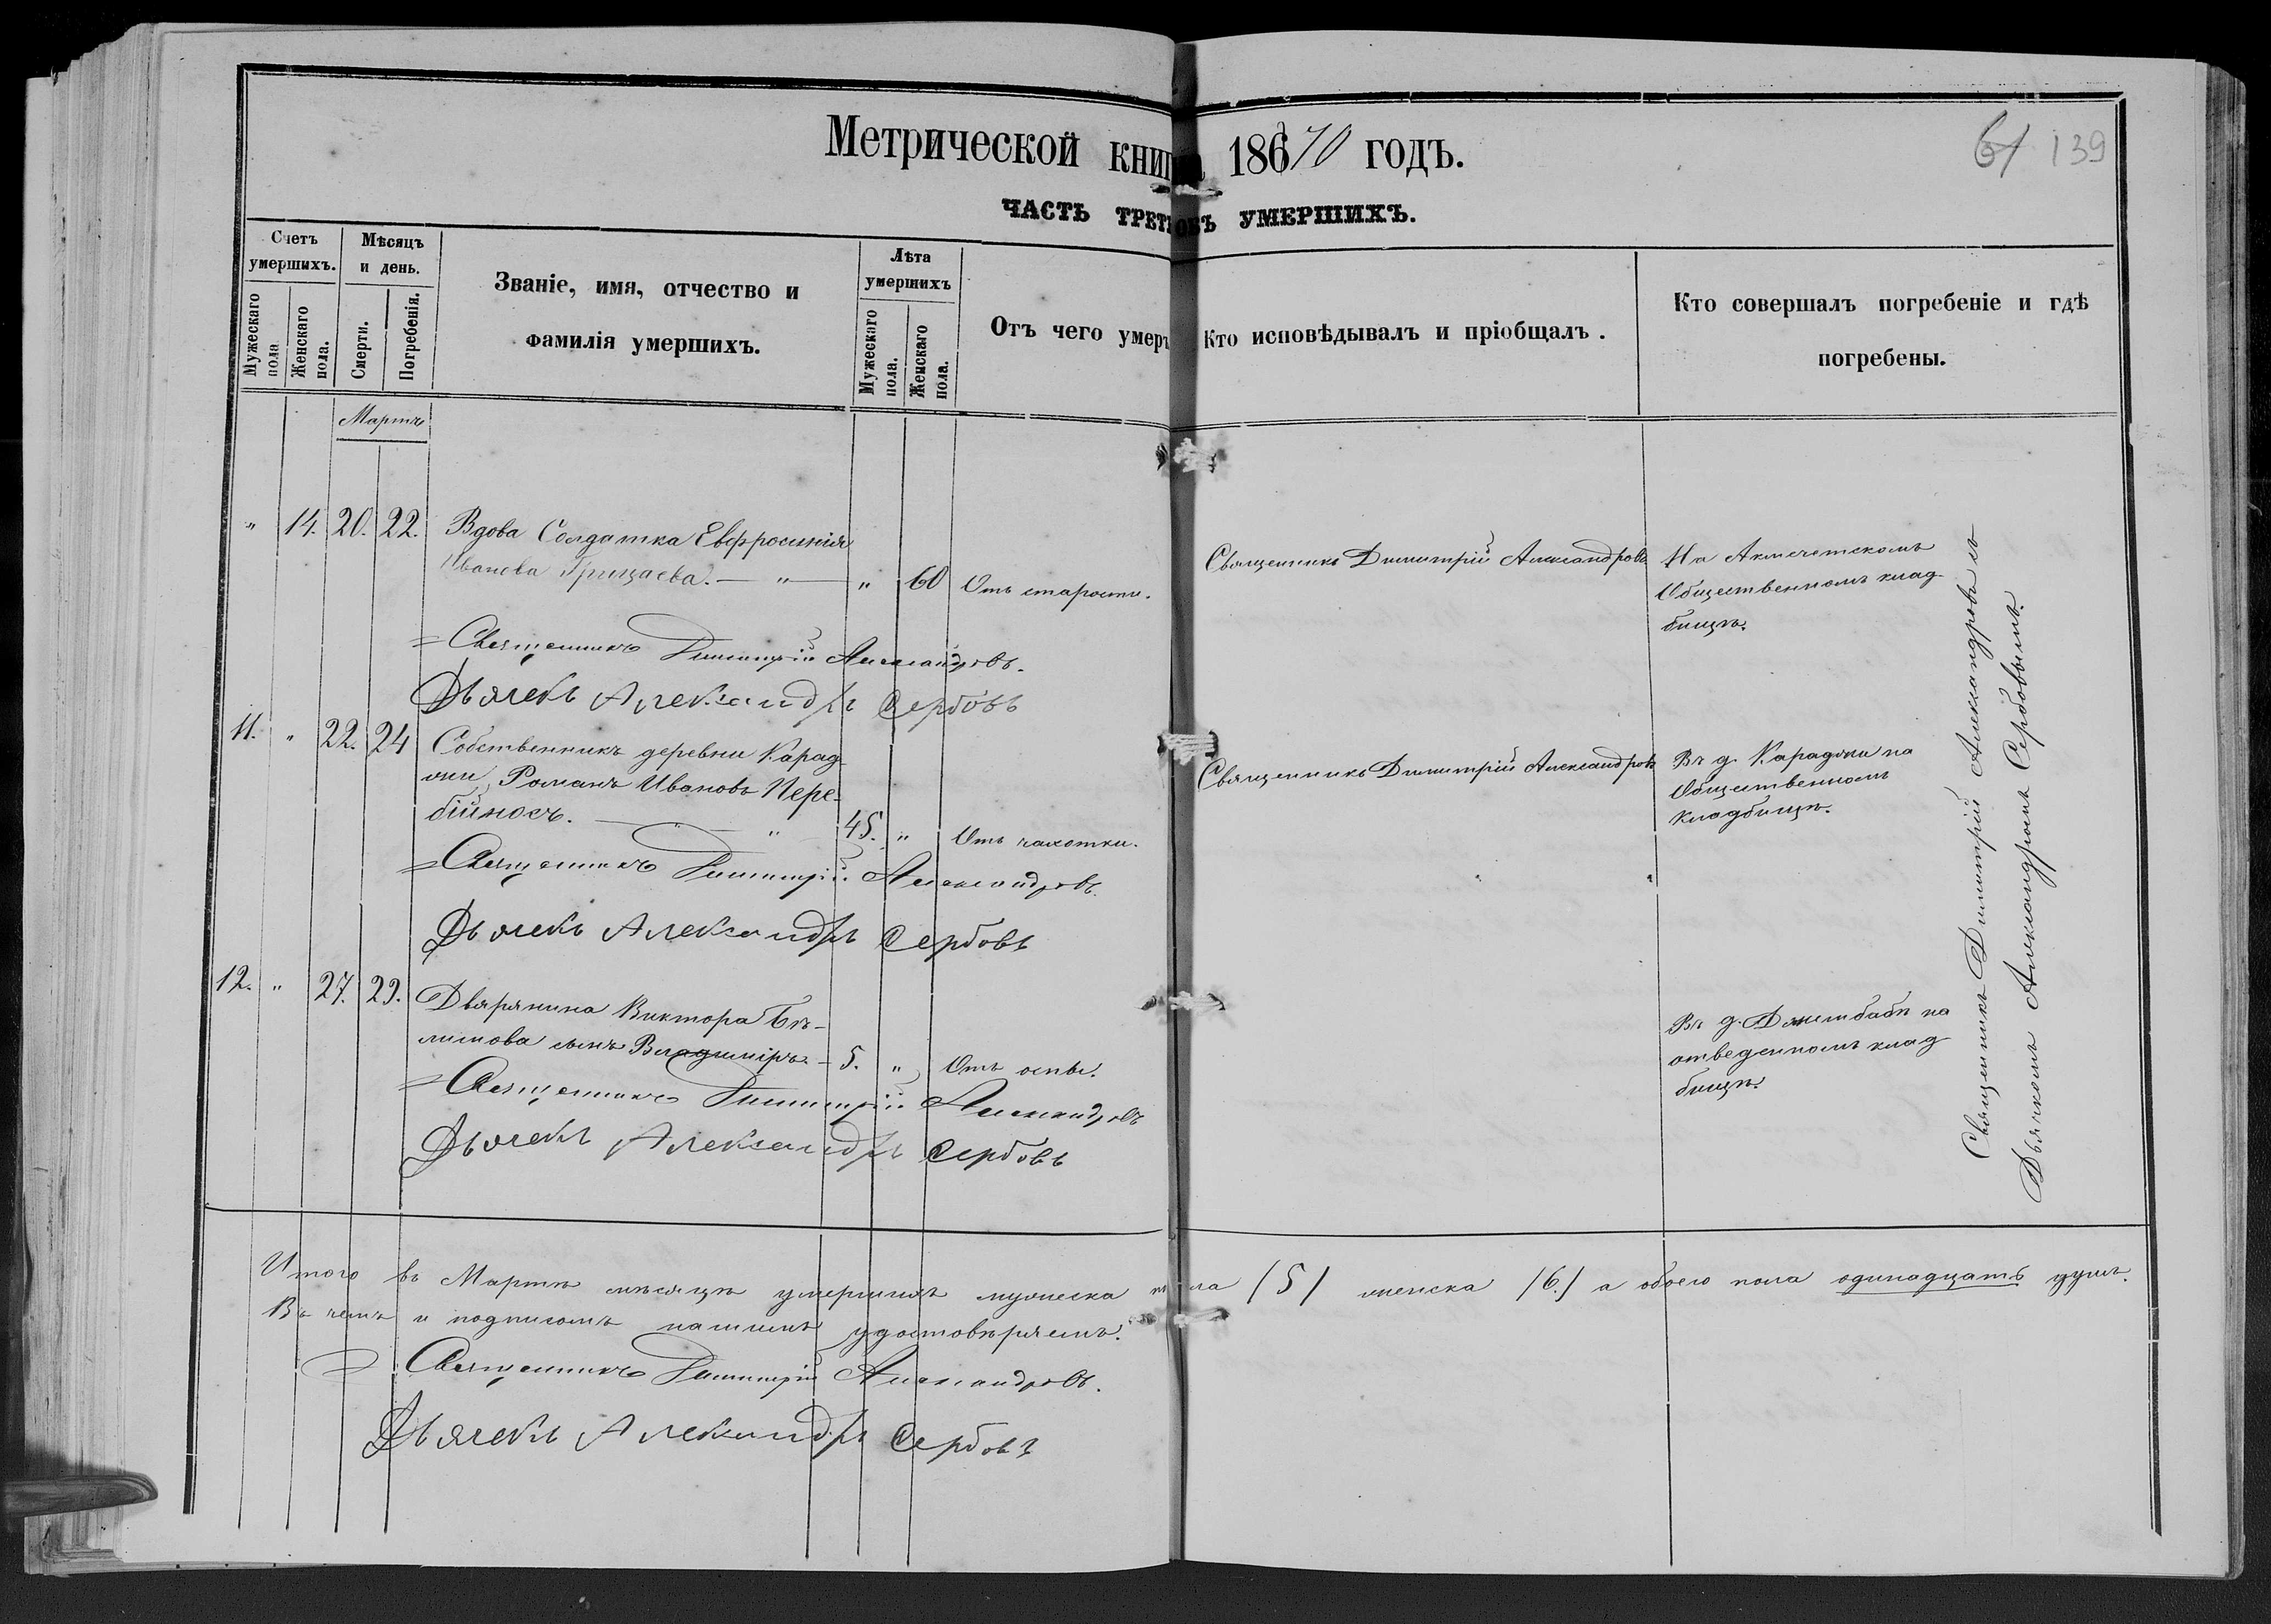 Метрической книги 1870 годъ.
61 139
ЧАСТЬ ТРЕТЬ УМЕРШИХЪ.
Счетъ умершихъ.
Мужескаго пола
Женскаго пола.
Мѣсяцъ и день.
Смерти.
Погребенія.
Званіе, имя, отчество и
фамилія умершихъ.
Лѣта умершихъ
Мужескаго пола.
Женскаго пола.
Отъ чего умер
Кто исповѣдывалъ и пріобщалъ.
Кто совершалъ погребеніе и гдѣ
погребены.
Мартъ
" 14. 20. 22. Вдова Солдатка Евфросинія
Иванова Грицаева. — " — " 60 Отъ старости.
Священникъ Димитрій Александровъ
На Акмечетскомъ
Общественномъ клад
бищѣ.
Священникъ Димитрій Александровъ.
Дьячекъ Александръ Сербовъ
11. " 22. 24 Собственникъ деревни Карад
жи, Романъ Ивановъ Пере-
бійносъ. — " — " 45. " Отъ чахотки.
Священникъ Димитрій Александровъ
Въ д. Караджи на
Общественномъ
кладбищѣ.
Священникъ Димитрій Александровъ.
Дьячекъ Александръ Сербовъ
12. " 27. 29. Дварянина Виктора Бѣ-
лимова сынъ Владиміръ. — 5. " Отъ оспы.
Въ д. на
отведенномъ клад
бищѣ.
Священникъ Димитрій Александровъ
Дьячекъ Александръ Сербовъ
Священникъ Димитрій Александровъ съ
Дьячкомъ Александромъ Сербовымъ.
Итого въ Мартѣ мѣсяцѣ умершихъ мужеска пола (5) женска (6.) а обоего пола одинадцать душъ.
Въ чемъ и подписомъ нашимъ удостовѣряемъ.
Священникъ Димитрій Александровъ.
Дьячекъ Александръ Сербовъ